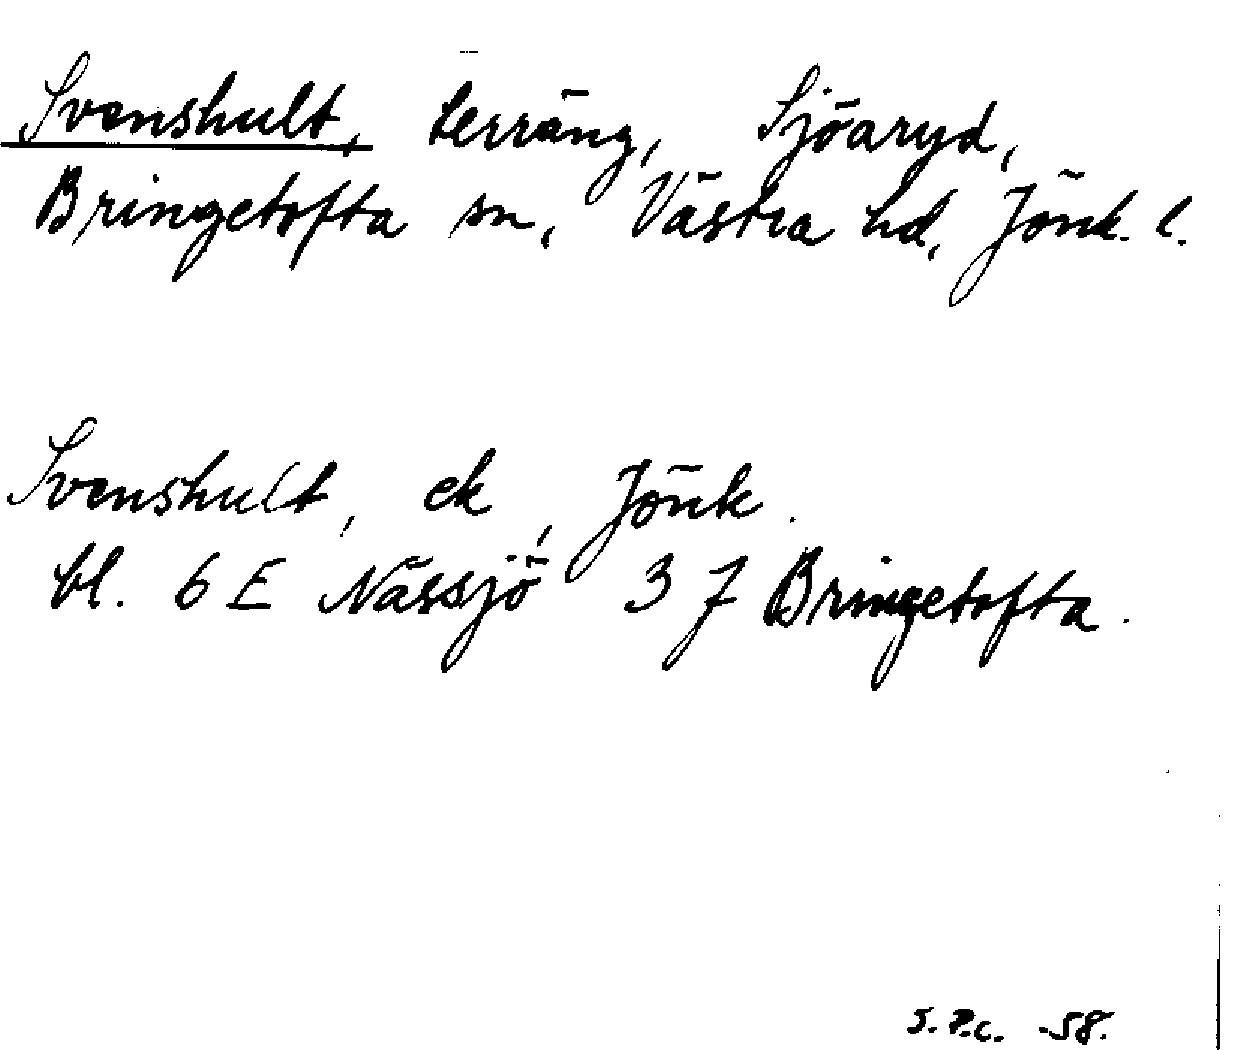 Svenshult, terräng, Sjöaryd,
Bringetofta sn, Västra hd, Jönk. l.
Svenshult, ek, Jönk.
bl. 6 E Nässjö 3 J Bringetofta.
S.P.C. -58.